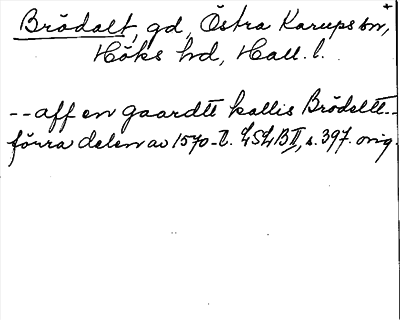 Brödalt, gd, Östra Karups sn,
Höks hd, Hall. l.
-- aff en gaardtt kallis Brödeltt --
förra delen av 1570-t. LSLB II, s. 397. orig.